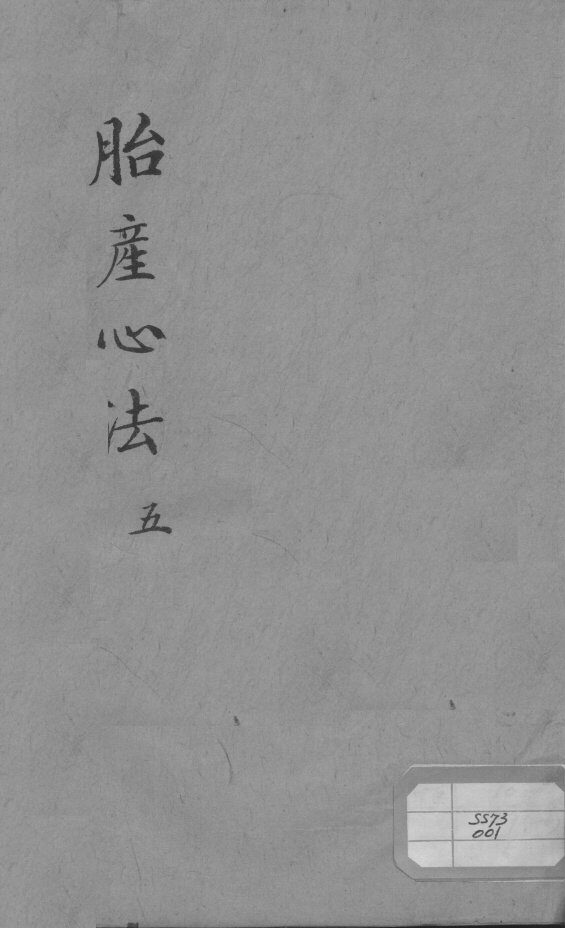 胎產心法 五
SS73
001